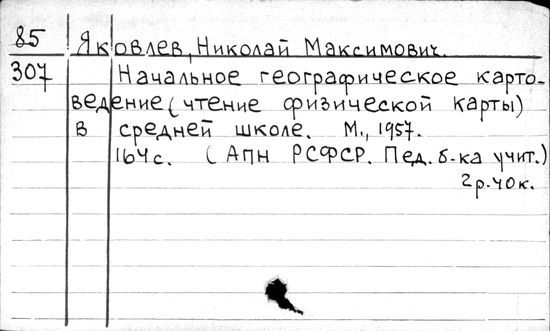 85 Яковлев, Николай Максимович.
307 Начальное географическое карто-
ведение (чтение физической карты)
в средней школе. М., 1957.
164 с. (АПН РСФСР. Пед. б-ка учит.)
2 р. 40 к.